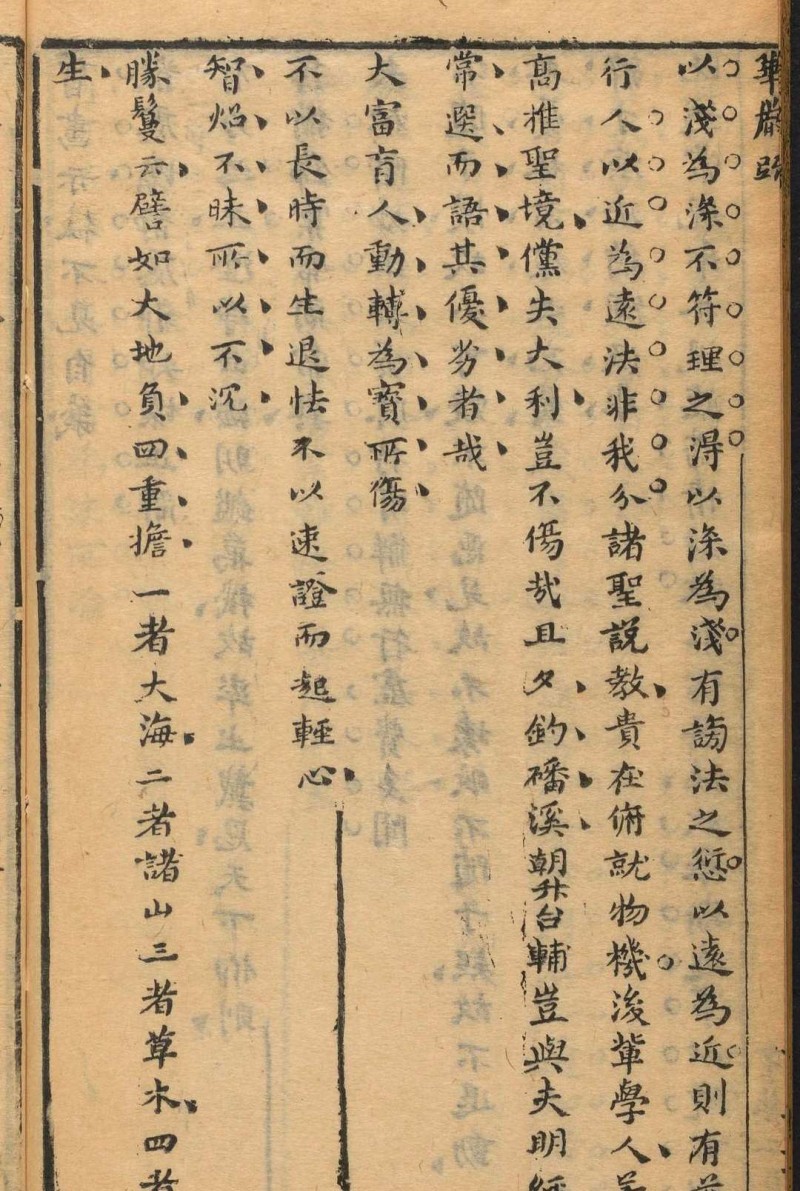 華嚴疏
以淺為深不符理之淂以深為淺有謗法之愆以遠為近則有
行人以近為遠法非我分諸聖說教貴在俯就物機後輩學人
高推聖境儻失大利豈不傷哉且夕釣磻溪朝升台輔豈與夫明經
常選而語其優劣者哉
大富盲人動轉為寶所傷
不以長時而生退怯不以速證而起輕心
智焰不昧所以不沉
勝鬘云譬如大地負四重擔一者大海二者諸山三者草木四者
生